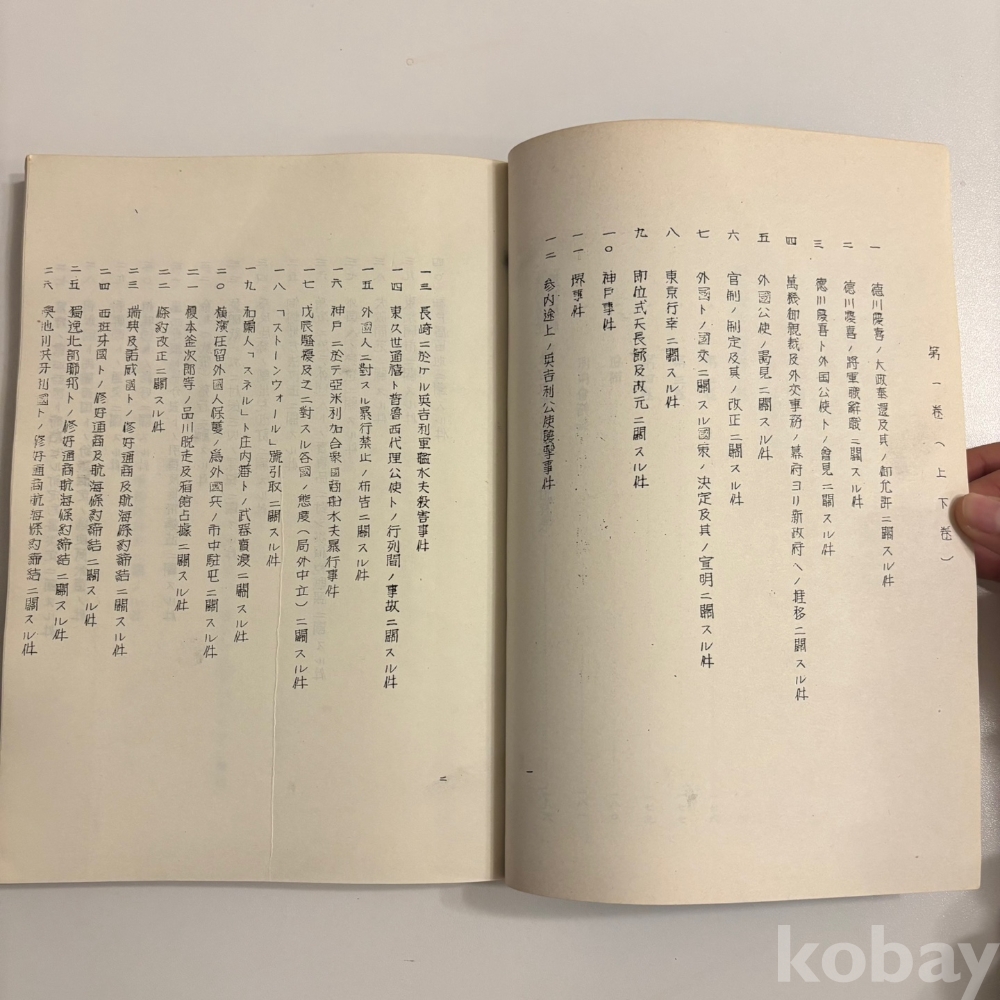 第一巻（上下巻）
一 徳川慶喜ノ大政奉還及其ノ御允許ニ關スル件
二 徳川慶喜ノ將軍職辭職ニ關スル件
三 徳川慶喜ト外国公使トノ會見ニ關スル件
四 萬機御親裁及外交事務ノ幕府ヨリ新政府ヘノ推移ニ關スル件
五 外國公使ノ謁見ニ關スル件
六 官制ノ制定及其ノ改正ニ關スル件
七 外國トノ國交ニ關スル國衆ノ決定及其ノ宣明ニ關スル件
八 東京行幸ニ關スル件
九 即位式天長節及改元ニ關スル件
一〇 神戸事件
一一 堺事件
一二 参内途上ノ英吉利公使襲撃事件
一
一三 長崎ニ於ケル英吉利軍艦水夫殺害事件
一四 東久世通禧ト普魯西代理公使トノ行列間ノ事故ニ關スル件
一五 外國人ニ對スル暴行禁止ノ布告ニ關スル件
一六 神戸ニ於テ亞米利加合衆國商船水夫暴行事件
一七 戊辰騒擾及之ニ對スル各國ノ態度（局外中立）ニ關スル件
一八 「ストーンウォール」號引取ニ關スル件
一九 和蘭人「スネル」ト庄内藩トノ武器賣渡ニ關スル件
二〇 横濱在留外國人保護ノ爲外國兵ノ市中駐屯ニ關スル件
二一 榎本釜次郎等ノ品川脱走及箱館占據ニ關スル件
二二 條約改正ニ關スル件
二三 瑞典及諾威國トノ修好通商及航海條約締結ニ關スル件
二四 西班牙國トノ修好通商及航海條約締結ニ關スル件
二五 獨逸北部聯邦トノ修好通商航海條約締結ニ關スル件
二六 奥地利洪牙利國トノ修好通商航海條約締結ニ關スル件
二
kobay